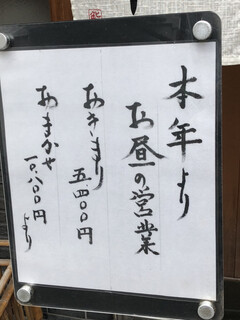 本年より
お昼の営業
おきまり
五.四〇〇円
おまかせ
一〇.八〇〇円より